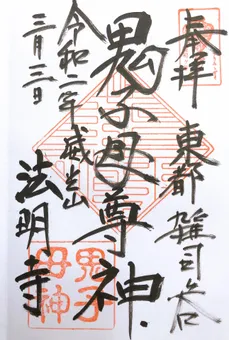 奉拝
東都 雑司ヶ谷
鬼子母尊神
威光山
法明寺
令和二年
三月三日
鬼子
母神